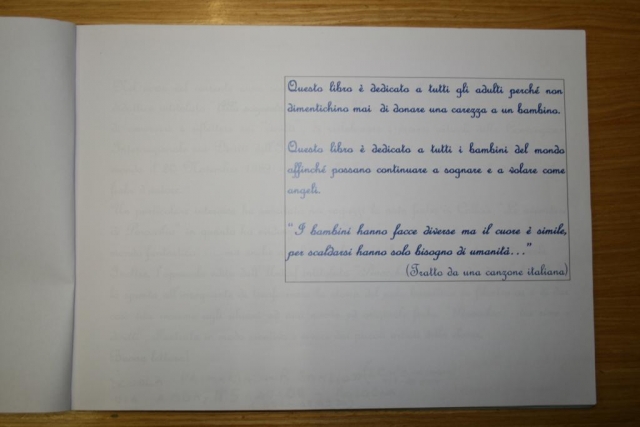 Questo libro è dedicato a tutti gli adulti perché non
dimentichino mai di donare una carezza a un bambino.
Questo libro è dedicato a tutti i bambini del mondo
affinché possano continuare a sognare e a volare come
angeli.
"I bambini hanno facce diverse ma il cuore è simile,
per scaldarsi hanno solo bisogno di umanità..."
(Tratto da una canzone italiana)